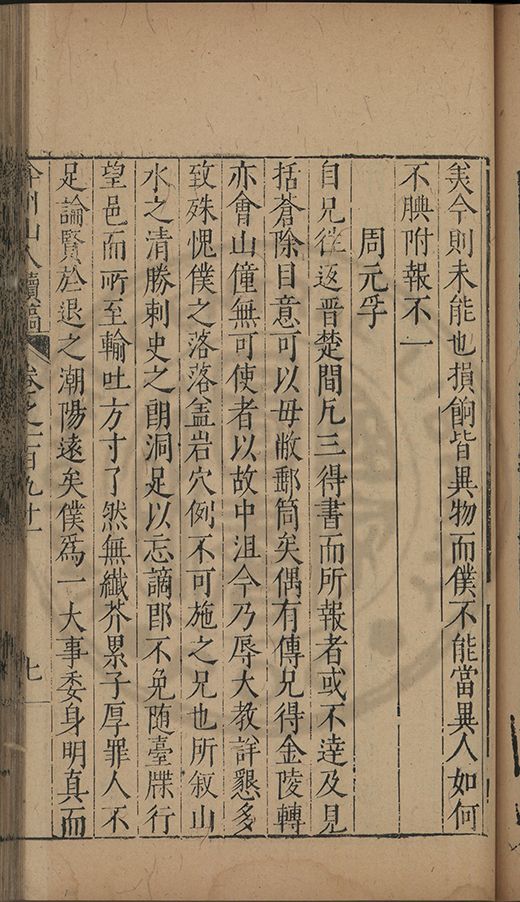 矣今則未能也損餉皆異物而僕不能當異人如何
不腆附報不一
周元孚
自兄往返晉楚間凡三得書而所報者或不達及見
括蒼除目意可以毋敝郵筒矣偶有傳兄得金陵轉
亦會山僮無可使者以故中沮今乃辱大教詳懇多
致殊愧僕之落落盖岩穴例不可施之兄也所叙山
水之清勝刺史之朗洞足以忘謫郎不免随臺牒行
望邑而所至輸吐方寸了然無纖芥累子厚罪人不
足論賢於退之潮陽遠矣僕為一大事委身明真而
弇州山人續稿 卷之一百九十一 七